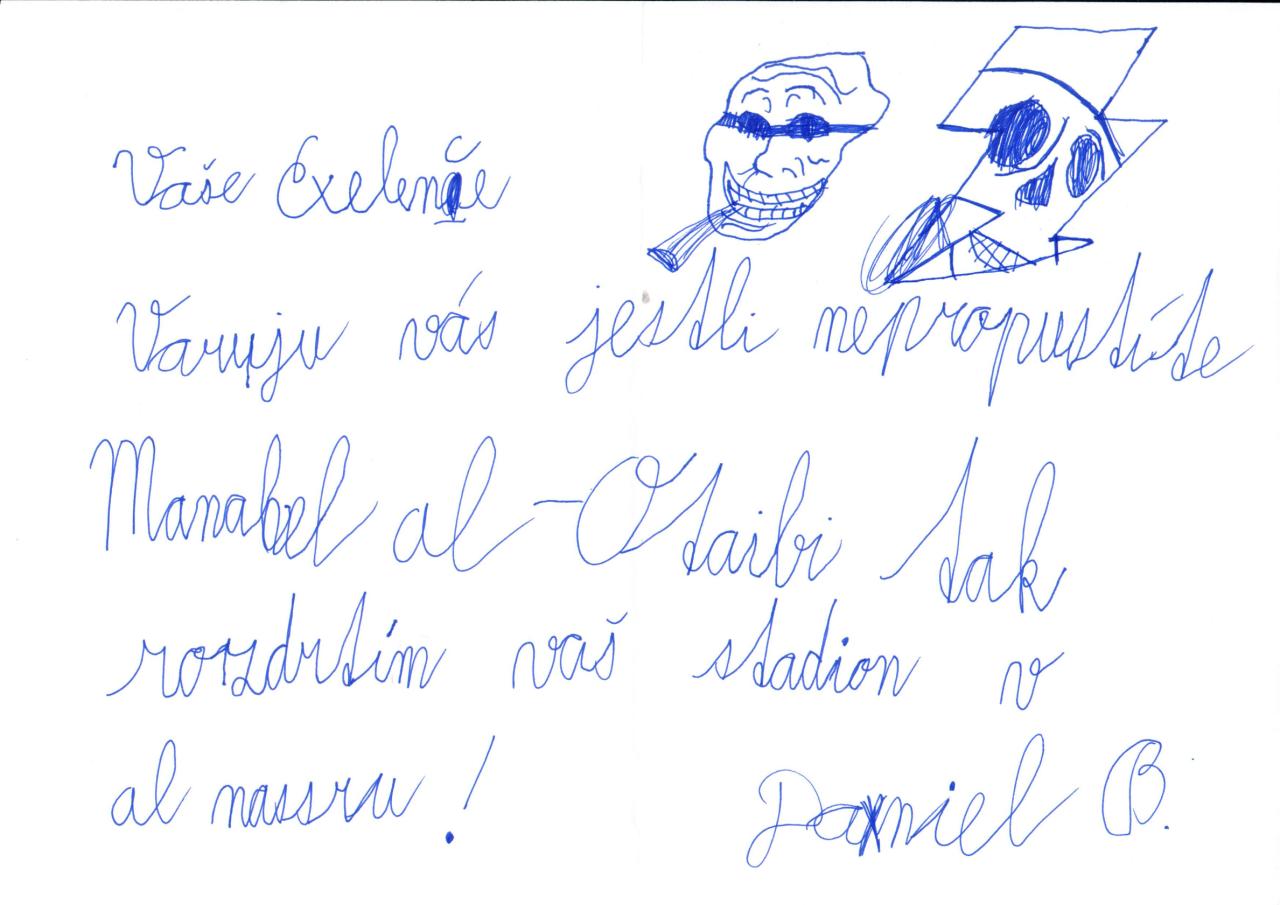 Vaše Exelenče
Varuju vás jestli nepropustíte
Manabel al-Otaibi tak
rozdrtím vaš stadion v
al nassru!
Daniel B.